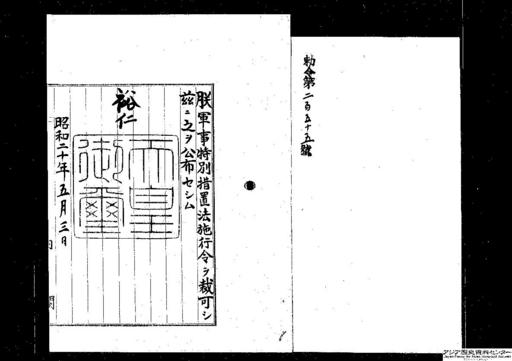 勅令第二百五十五號
朕軍事特別措置法施行令ヲ裁可シ
茲ニ之ヲ公布セシム
裕仁
天皇御璽
昭和二十年五月三日
アジア歴史資料センター